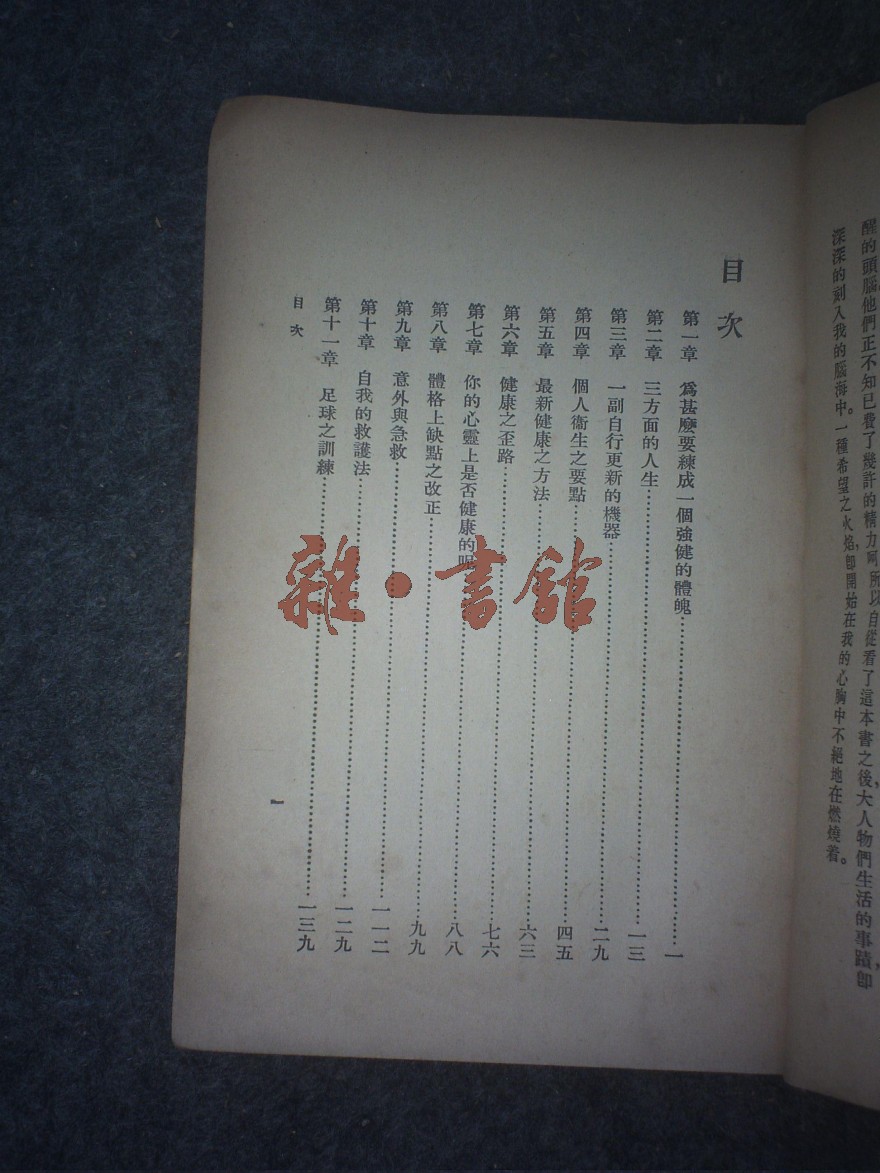 醒的頭腦他們正不知已費了幾許的精力呵所以自從看了這本書之後，大人物們生活的事蹟，即
深深的刻入我的腦海中。一種希望之火焰，即開始在我的心胸中不絕地在燃燒着。
目次
第一章 爲甚麼要練成一個強健的體魄……一
第二章 三方面的人生……一三
第三章 一副自行更新的機器……二九
第四章 個人衞生之要點……四五
第五章 最新健康之方法……六三
第六章 健康之歪路……七六
第七章 你的心靈上是否健康的呢……八八
第八章 體格上缺點之改正……九九
第九章 意外與急救……一一二
第十章 自我的救護法……一二九
第十一章 足球之訓練……一三九
目次
一
雜·書館